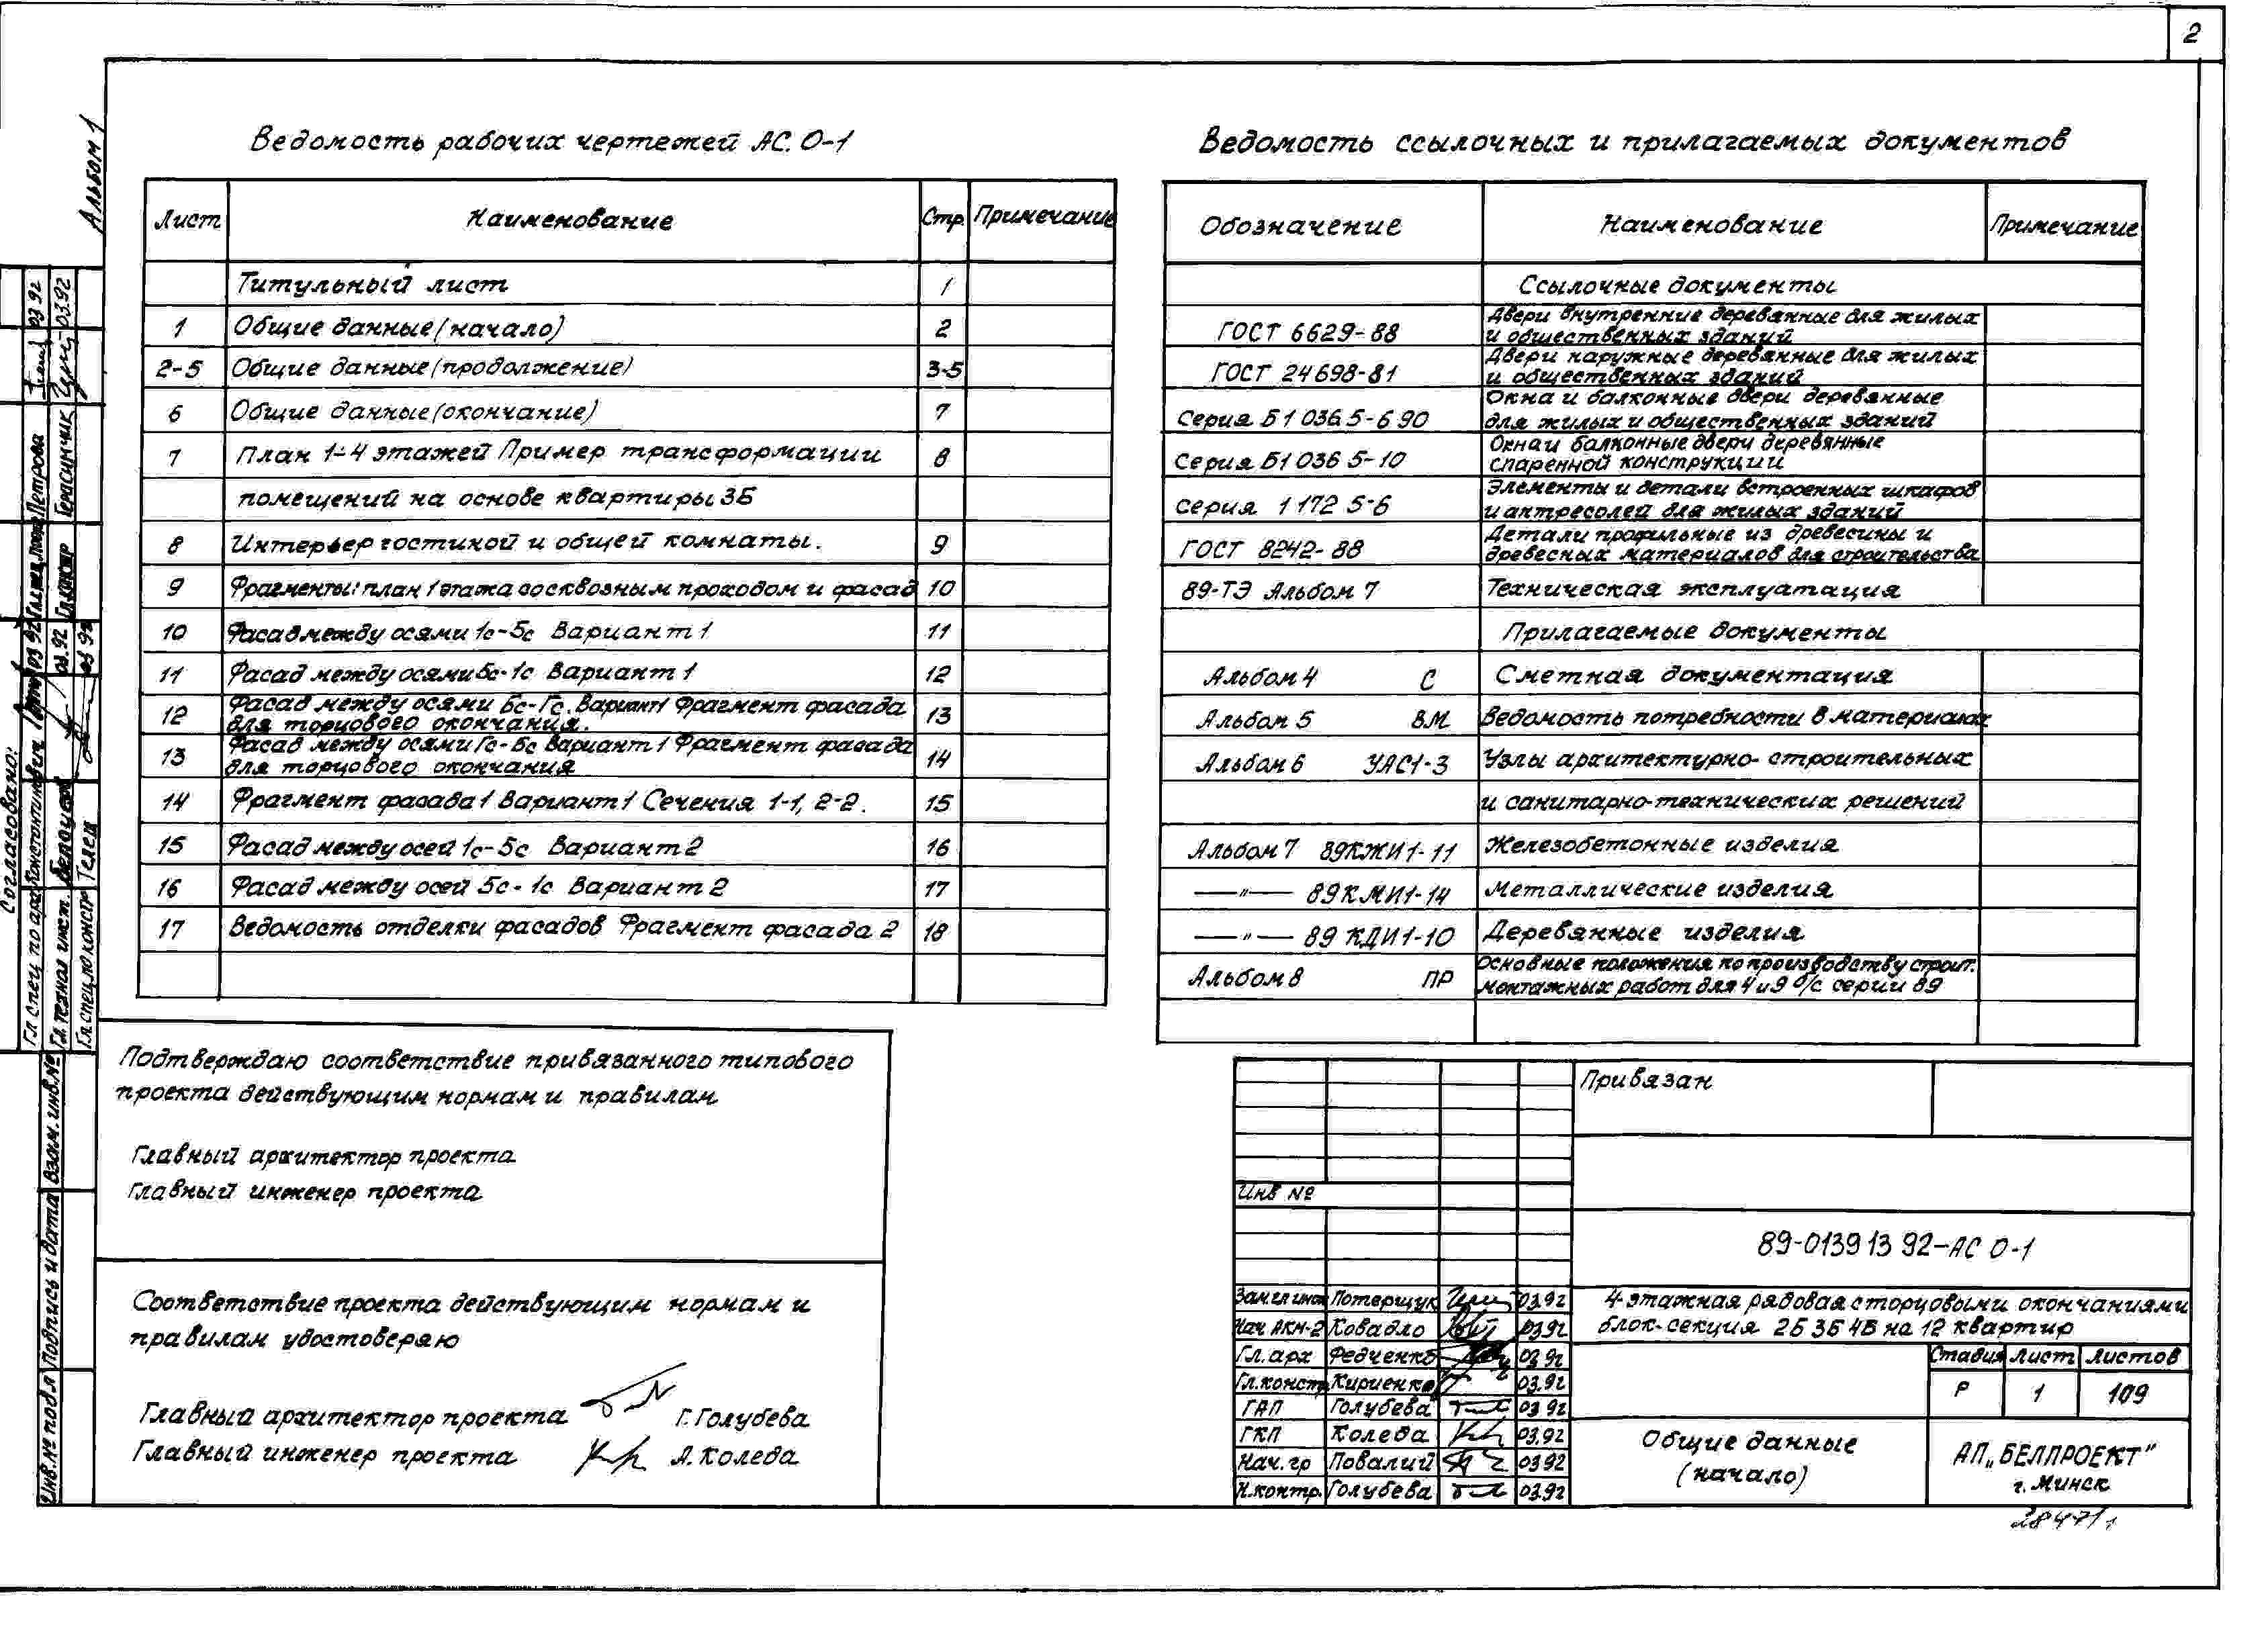 2
Альбом 1
Ведомость рабочих чертежей АС. 0-1
Лист Наименование Стр. Примечание
Титульный лист 1
1 Общие данные (начало) 2
2-5 Общие данные (продолжение) 3-5
6 Общие данные (окончание) 7
7 План 1-4 этажей Пример трансформации 8
помещений на основе квартиры 3Б
8 Интерьер гостиной и общей комнаты. 9
9 Фрагменты: план 1 этажа со сквозным проходом и фасад 10
10 Фасад между осями 1с-5с Вариант 1 11
11 Фасад между осями 5с-1с Вариант 1 12
12 Фасад между осями Бс-Гс. Вариант 1 Фрагмент фасада 13
для торцового окончания.
13 Фасад между осями Гс-Бс Вариант 1 Фрагмент фасада 14
для торцового окончания
14 Фрагмент фасада 1 Вариант 1 Сечения 1-1, 2-2. 15
15 Фасад между осей 1с-5с Вариант 2 16
16 Фасад между осей 5с-1с Вариант 2 17
17 Ведомость отделки фасадов Фрагмент фасада 2 18
Ведомость ссылочных и прилагаемых документов
Обозначение Наименование Примечание
Ссылочные документы
ГОСТ 6629-88 Двери внутренние деревянные для жилых
и общественных зданий
ГОСТ 24698-81 Двери наружные деревянные для жилых
и общественных зданий
Серия Б1 036.5-6 90 Окна и балконные двери деревянные
для жилых и общественных зданий
Серия Б1 036 5-10 Окна и балконные двери деревянные
спаренной конструкции
Серия 1 172 5-6 Элементы и детали встроенных шкафов
и антресолей для жилых зданий
ГОСТ 8242-88 Детали профильные из древесины и
древесных материалов для строительства
89-ТЭ Альбом 7 Техническая эксплуатация
Прилагаемые документы
Альбом 4 С Сметная документация
Альбом 5 ВМ Ведомость потребности в материалах
Альбом 6 УАС1-3 Узлы архитектурно-строительных
и санитарно-технических решений
Альбом 7 89КЖИ1-11 Железобетонные изделия
—"— 89КМИ1-14 Металлические изделия
—"— 89 КДИ1-10 Деревянные изделия
Альбом 8 ПР Основные положения по производству строит.
монтажных работ для 4 и 9 б/с серии 89
Подтверждаю соответствие привязанного типового
проекта действующим нормам и правилам
Главный архитектор проекта
Главный инженер проекта
Соответствие проекта действующим нормам и
правилам удостоверяю
Главный архитектор проекта Г. Голубева
Главный инженер проекта А. Коледа
Привязан
Инв №
89-0139 13 92-АС 0-1
Зам.гл инж Потерщук 03.92
Нач АКМ-2 Ковадло 03.92
Гл. арх Федченко 03.92
Гл.констр. Кириенко 03.92
ГАП Голубева 03 92
ГКП Коледа 03.92
Нач. гр Повалий 03.92
Н.контр. Голубева 03.92
4-этажная рядовая с торцовыми окончаниями
блок-секция 2Б 3Б 4Б на 12 квартир
Стадия Лист Листов
Р 1 109
Общие данные
(начало)
АП „БЕЛПРОЕКТ"
г. Минск
28471/1
Согласовано:
Гл спец по арх Константинович 03 92
Гл. технол инст. Белоусов 03.92
Гл.спец.по констр Телеш 03 92
Петрова 03 92
Герасимчик 03.92
Взам. инв.№
Подпись и дата
Инв.№ подл